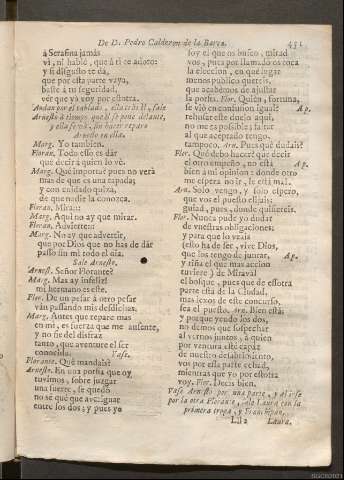 De D. Pedro Calderon de la Barca. 451
à Serafina jamàs
vì, ni hablè, que à tì te adoro:
y si disgusto te dà,
que por esta parte vaya,
baste à mi seguridad,
vèr que yà voy por estotra.
Andan por el tablado, ella tràs èl, sale
Arnesto à tiempo que èl se pone delante,
y ella se và, sin hacer reparo
Arnesto en ella.
Marg. Yo tambien.
Floran. Todo esso es dàr
que decir à quien lo vè.
Marg. Què importa? pues no verà
mas de que es una tapada;
y con cuidado quizà,
de que nadie la conozca.
Floran. Mirad:
Marg. Aqui no ay que mirar.
Floran. Advierte:
Marg. No ay que advertir,
que por Dios que no has de dàr
passo sin mì todo el dia.
Sale Arnesto.
Arnest. Señor Florante?
Marg. Mas ay infeliz!
mi hermano es este.
Flor. De un pesar à otro pesar
vàn passando mis desdichas.
Marg. Antes que repare mas
en mì, es fuerza que me ausente,
y no fie del disfràz
tanto, que aventure el ser
conocida. Vase.
Florante. Què mandais?
Arnesto. En una porfia que oy
tuvimos, sobre juzgar
una suerte, se quedò
no sè què que averiguar
entre los dos; y pues yo
soy el que os busco, mirad
vos, pues por llamado os toca
la eleccion, en què lugar
menos publico quereis,
que acabèmos de ajustar
la porfia. Flor. Quièn, fortuna,
se viò en confusion igual? Ap.
rehusar este duelo aqui,
no me es possible; faltar
al que acepto tengo,
tampoco. Arn. Pues què dudais?
Flor. Què debo hacer? que decir
el otro empeño, no està Ap.
bien à mi opinion: donde otro
me espera no ir, le està mal.
Arn. Solo vengo, y solo espero,
que vos el puesto elijais;
guiad, pues, donde quisiereis.
Flor. Nunca pude yo dudar
de vuestras obligaciones;
y para que lo veais
(esto ha de ser, vive Dios,
que los tengo de juntar, Ap.
y riña el que mas accion
tuviere) de Miravàl
el bosque, pues que de essotra
parte està de la Ciudad,
mas lexos de este concurso,
sea el puesto. Arn. Bien està:
y porque yendo los dos,
no demos que sospechar
al vernos juntos, à quien
por ventura estè capàz
de nuestro desabrimiento,
vos por essa parte echad,
mientras que yo por estotra
voy. Flor. Decis bien.
Vase Arnesto por una parte, y al irse
por la otra Florante, sale Laura con la
primera tropa, y Franchipan.
Lll 2 Laura.